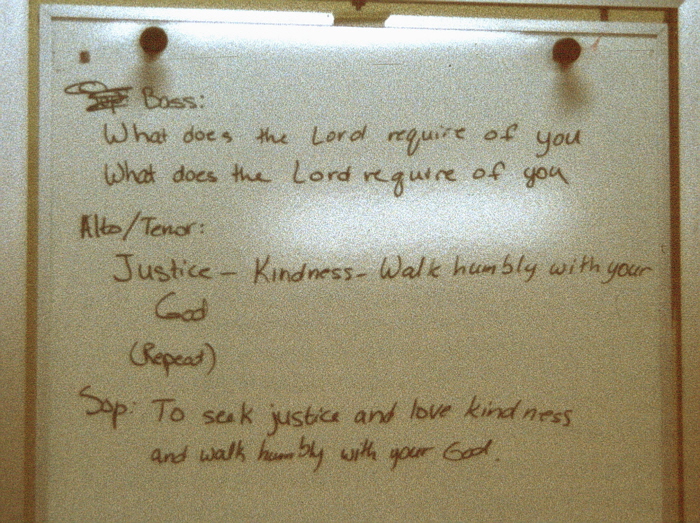 Bass:
What does the Lord require of you
What does the Lord require of you
Alto/Tenor:
Justice - Kindness - Walk humbly with your
God
(Repeat)
Sop: To seek justice and love kindness
and walk humbly with your God.